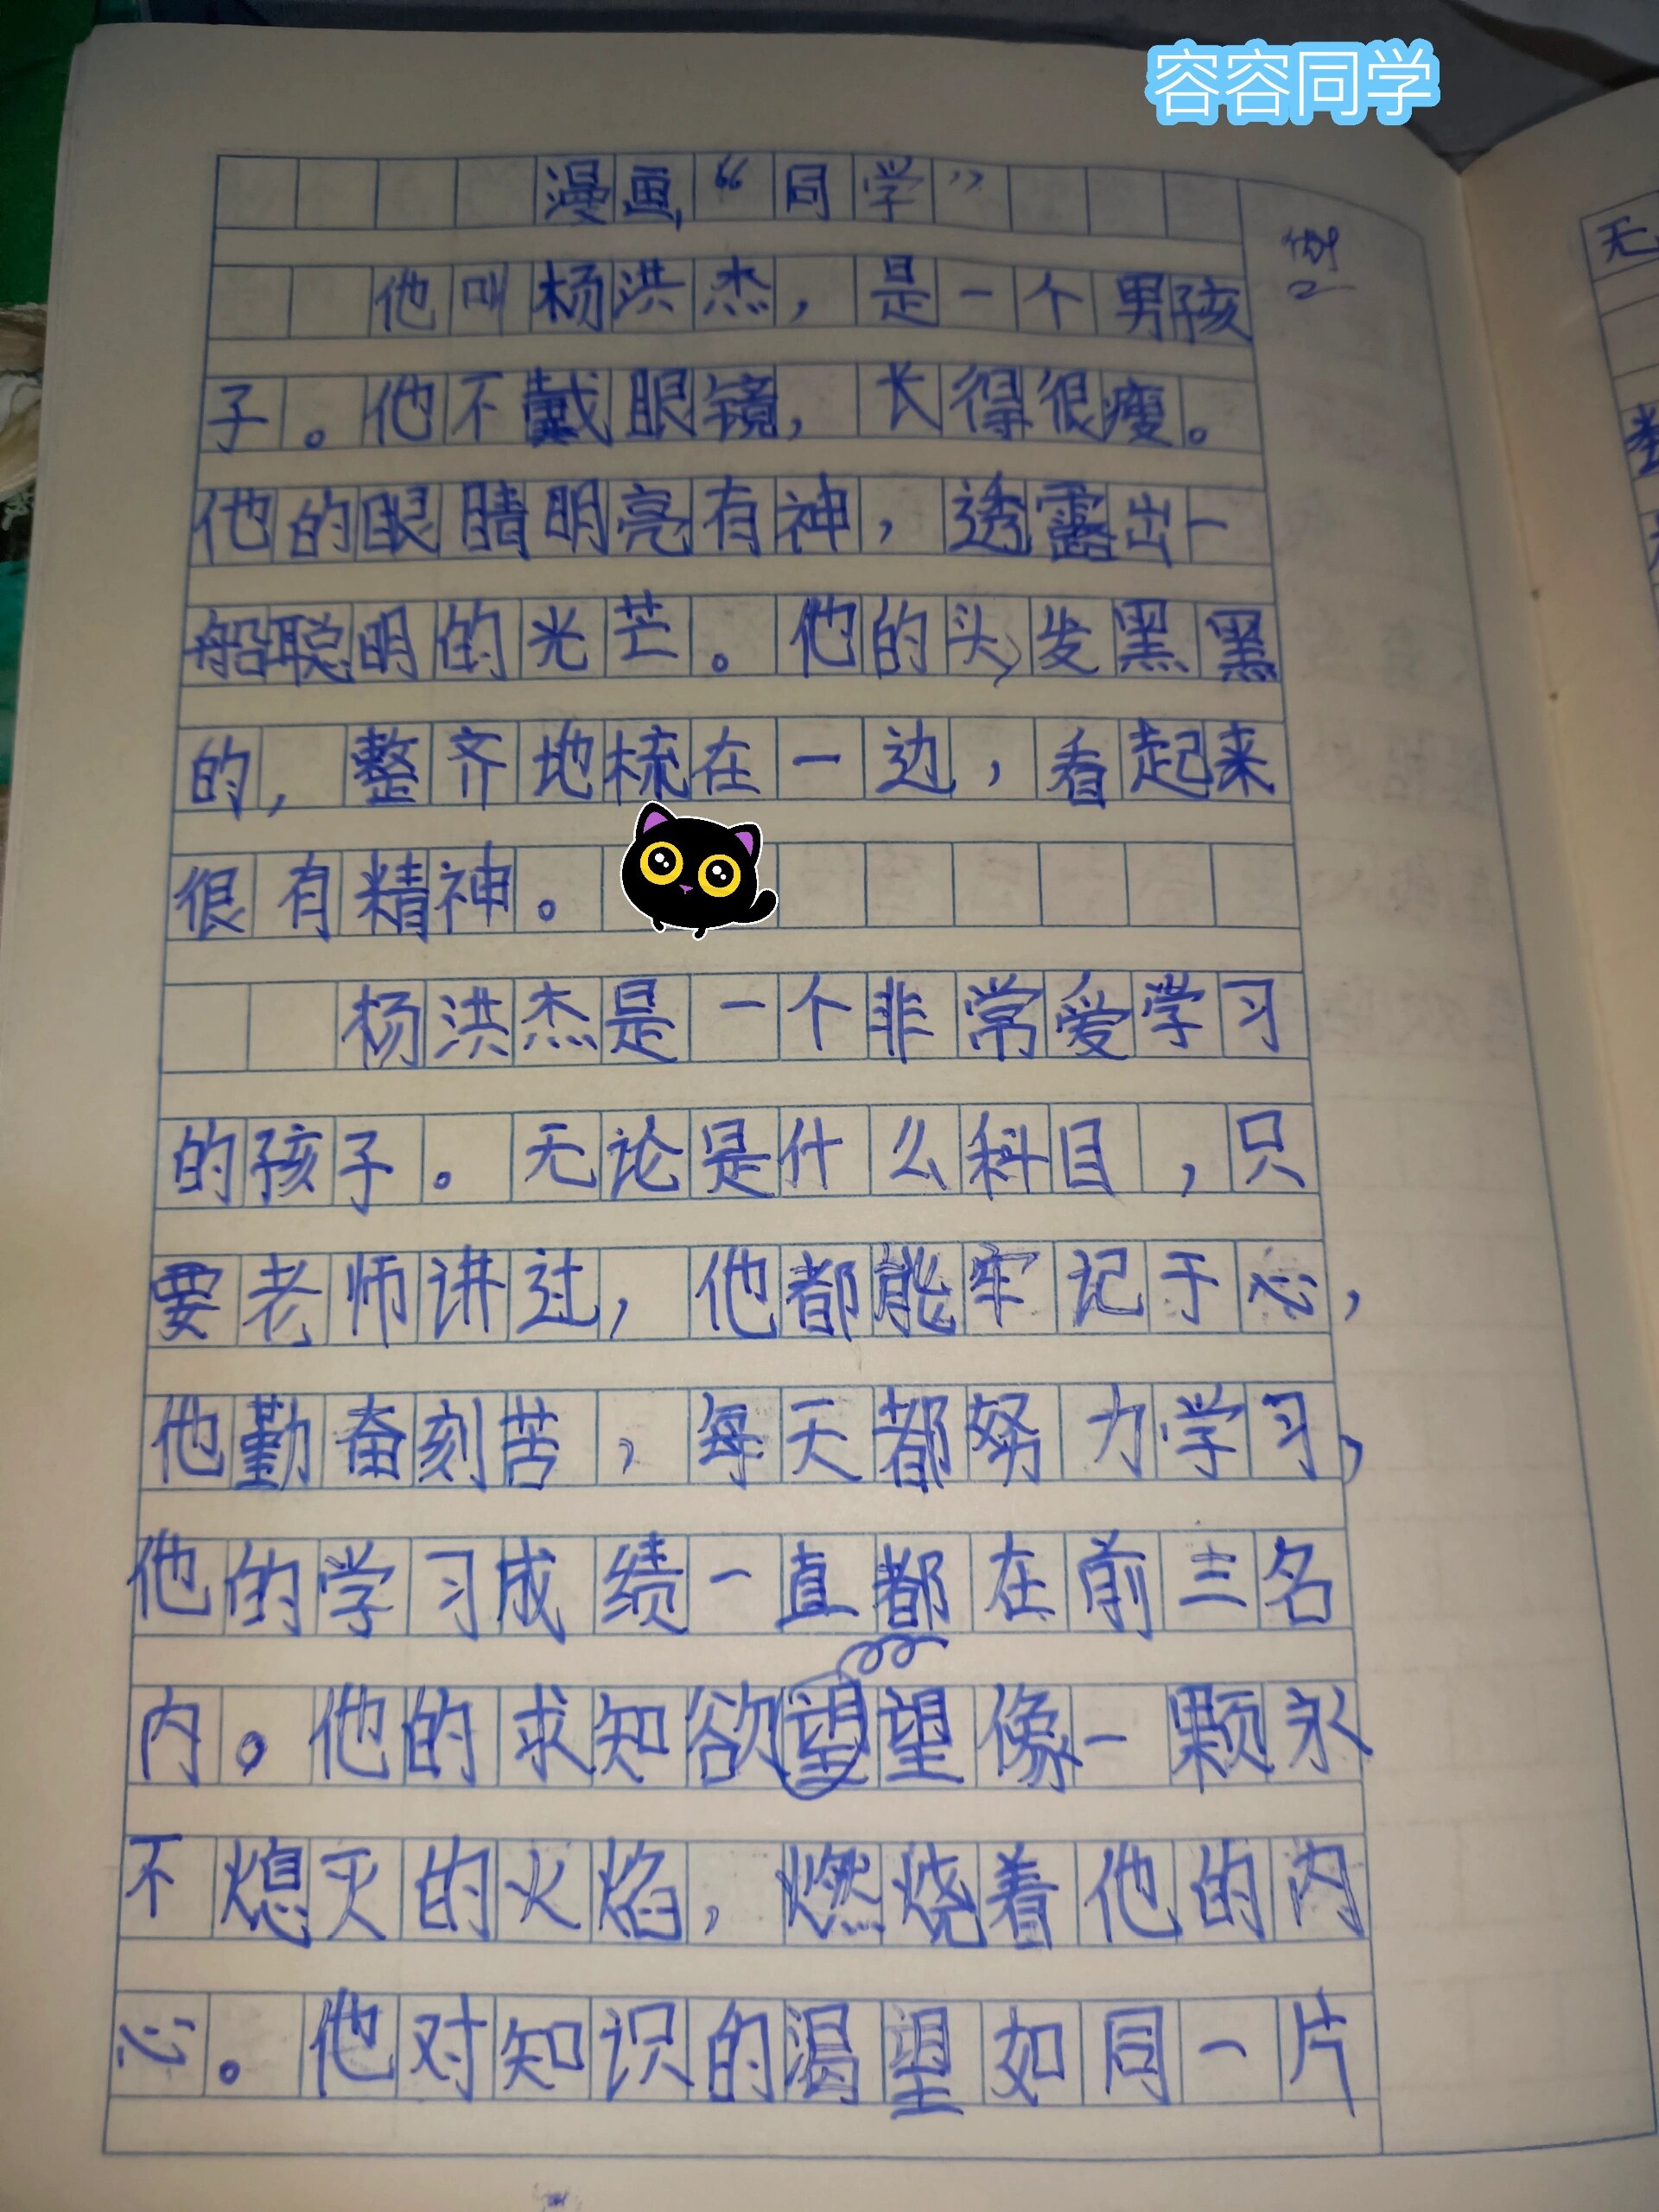 容容同学
漫画“同学”
例2
他叫杨洪杰，是一个男孩
子。他不戴眼镜，长得很瘦。
他的眼睛明亮有神，透露出一
般聪明的光芒。他的头发黑黑
的，整齐地梳在一边，看起来
很有精神。
杨洪杰是一个非常爱学习
的孩子。无论是什么科目，只
要老师讲过，他都能牢记于心，
他勤奋刻苦，每天都努力学习，
他的学习成绩一直都在前三名
内。他的求知欲望望像一颗永
不熄灭的火焰，燃烧着他的内
心。他对知识的渴望如同一片
无